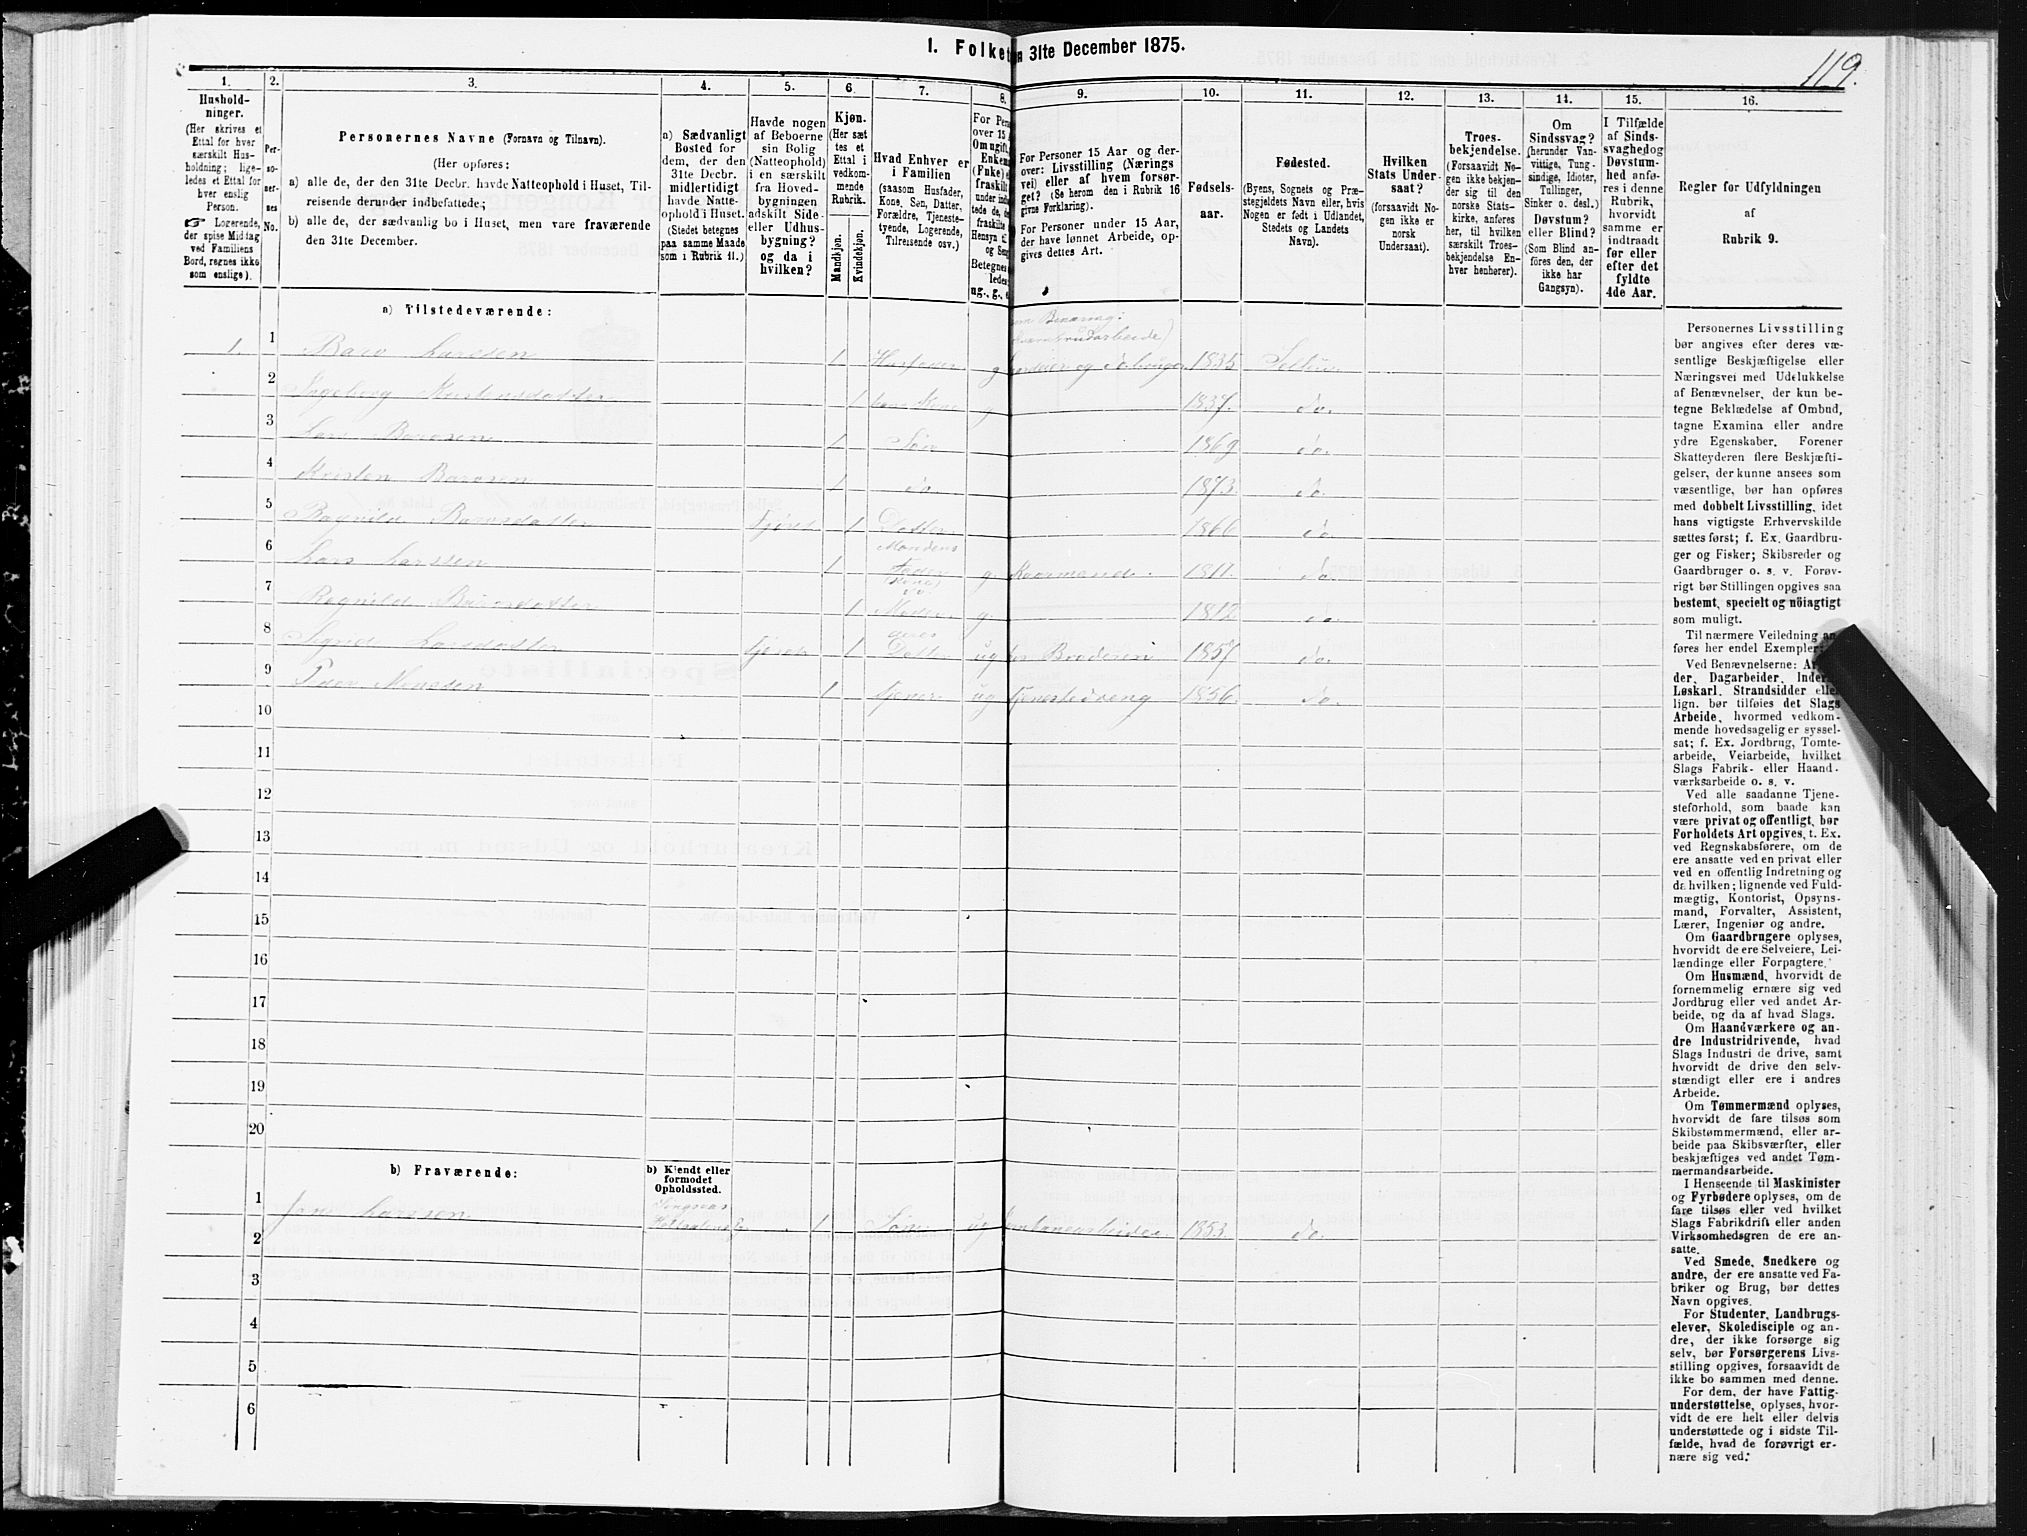 1. Folket
n 31te December 1875.
119.
1.
2.
3.
4.
5.
6.
7.
8.
9.
10.
11.
12.
13.
14.
15.
16.
Hushold-
ninger.
(Her skrives et
Ettal for hver
særskilt Hus-
holdning; lige-
ledes et Ettal for
hver enslig
Person.
☞ Logerende,
der spise Middag
ved Familiens
Bord, regnes ikke
som enslige).
Per-
so-
ner-
nes
No.
Personernes Navne (Fornavn og Tilnavn).
(Her opføres:
a) alle de, der den 31te Decbr. havde Natteophold i Huset, Til-
reisende derunder indbefattede;
b) alle de, der sædvanlig bo i Huset, men vare fraværende
den 31te December.
a) Sædvanligt
Bosted for
dem, der den
31te Decbr.
midlertidigt
havde Natte-
ophold i Huset.
(Stedet betegnes
paa samme Maade
som i Rubrik 11.)
Havde nogen
af Beboerne
sin Bolig
(Natteophold)
i en særskilt
fra Hoved-
bygningen
adskilt Side-
eller Udhus-
bygning?
og da i
hvilken?
Kjøn.
(Her sæt-
tes et
Ettal i
vedkom-
mende
Rubrik.
Mandkjøn.
Kvindekjøn.
Hvad Enhver er
i Familien
(saasom Husfader,
Kone, Søn, Datter,
Forældre, Tjeneste-
tyende, Logerende,
Tilreisende osv.)
For Pers
over 15
Om ugift,
Enkem
(Fuke)
fraskilt
under ind
tede de,
fraskilte
Hensyn til
og Sen
Betegnes
ledes:
ug., g., e
For Personer 15 Aar og der-
over: Livsstilling (Nærings
vei) eller af hvem forsør-
get? (Se herom den i Rubrik 16
givne Forklaring).
For Personer under 15 Aar,
der have lønnet Arbeide, op-
gives dettes Art.
Fødsels-
aar.
Fødested.
(Byens, Sognets og Præ-
stegjeldets Navn eller, hvis
Nogen er født i Udlandet,
Stedets og Landets
Navn).
Hvilken
Stats Under-
saat?
(forsaavidt No-
gen ikke er
norsk
Undersaat).
Troes-
bekjendelse.
(Forsaavidt No-
gen ikke bekjen-
der sig til den
norske Stats-
kirke, anføres
her, til hvilken
særskilt Troes-
bekjendelse En-
hver henhører).
Om
Sindssvag?
(herunder Van-
vittige, Tung-
sindige, Idioter,
Tullinger,
Sinker o. desl.)
Døvstum?
eller Blind?
(Som Blind an-
føres den, der
ikke har
Gangsyn).
I Tilfælde
af Sinds-
svaghed og
Døvstum-
hed anfø-
res i denne
Rubrik,
hvorvidt
samme er
indtraadt
før eller
efter det
fyldte
4de Aar.
Regler for Udfyldningen
af
Rubrik 9.
a) Tilstedeværende:
1
1. Baro Larssen 1 Husfader g 1835
2
Ingeborg 1 g 1837. do.
3
Lars Barosen 1 Søn 1869 do.
4
Kristen Barosen 1 do. 1873 do.
5
Ragnild Barosdatter 1 Datter 1866 do.
6
Mandens
Lars Larssen 1 Fader g Kaarmand 1811. do.
7
Ragnild 1 Moder g 1812 do.
8
deres
Larsdatter 1 Datter ug Broderen 1857 do.
9
Monssen 1 tjener ug tjenestedreng 1856. do.
10
11
12
13
14
15
16
17
18
19
20
b) Fraværende:
b) Kjendt eller
formodet
Opholdssted.
1
Larssen 1 Søn ug Jernbanearbeider 1853. do.
2
3
4
5
6
Personernes Livsstilling
bør angives efter deres væ-
sentlige Beskjæftigelse eller
Næringsvei med Udelukkelse
af Benævnelser, der kun be-
tegne Beklædelse af Ombud,
tagne Examina eller andre
ydre Egenskaber. Forener
Skatteyderen flere Beskjæfti-
gelser, der kunne ansees som
væsentlige, bør han opføres
med dobbelt Livsstilling, idet
hans vigtigste Erhvervskilde
sættes først; f. Ex. Gaardbru-
ger og Fisker; Skibsreder og
Gaardbruger o. s. v. Forøv-
rigt bør Stillingen opgives saa
bestemt, specielt og nöiagtigt
som muligt.
Til nærmere Veiledning an-
føres her endel Exempler:
Ved Benævnelserne: Ar
der, Dagarbeider, Inder
Løskarl, Strandsidder eller
lign. bør tilføies det Slags
Arbeide, hvormed vedkom-
mende hovedsagelig er syssel-
sat; f. Ex. Jordbrug, Tomte-
arbeide, Veiarbeide, hvilket
Slags Fabrik- eller Haand-
værksarbeide o. s. v.
Ved alle saadanne Tjene-
steforhold, som baade kan
være privat og offentligt, bør
Forholdets Art opgives, t. Ex.
ved Regnskabsførere, om de
ere ansatte ved en privat eller
ved en offentlig Indretning og
da hvilken; lignende ved Fuld-
mægtig, Kontorist, Opsyns-
mand, Forvalter, Assistent,
Lærer, Ingeniør og andre.
Om Gaardbrugere oplyses,
hvorvidt de ere Selveiere, Lei-
lændinge eller Forpagtere.
Om Husmænd, hvorvidt de
fornemmelig ernære sig ved
Jordbrug eller ved andet Ar-
beide, og da af hvad Slags.
Om Haandværkere og an-
dre Industridrivende, hvad
Slags Industri de drive, samt
hvorvidt de drive den selv-
stændigt eller ere i andres
Arbeide.
Om Tømmermænd oplyses,
hvorvidt de fare tilsøs som
Skibstømmermænd, eller ar-
beide paa Skibsværfter, eller
beskjæftiges ved andet Tøm-
mermandsarbeide.
I Henseende til Maskinister
og Fyrbødere oplyses, om de
fare tilsøs eller ved hvilket
Slags Fabrikdrift eller anden
Virksomhedsgren de ere an-
satte.
Ved Smede, Snedkere og
andre, der ere ansatte ved Fa-
briker og Brug, bør dettes
Navn opgives.
For Studenter, Landbrugs-
elever, Skoledisciple og an-
dre, der ikke forsørge sig
selv, bør Forsørgerens Livs-
stilling opgives, forsaavidt de
ikke bo sammen med denne.
For dem, der have Fattig-
understøttelse, oplyses, hvor-
vidt de ere helt eller delvis
understøttede og i sidste Til-
fælde, hvad de forøvrigt er-
nære sig ved.